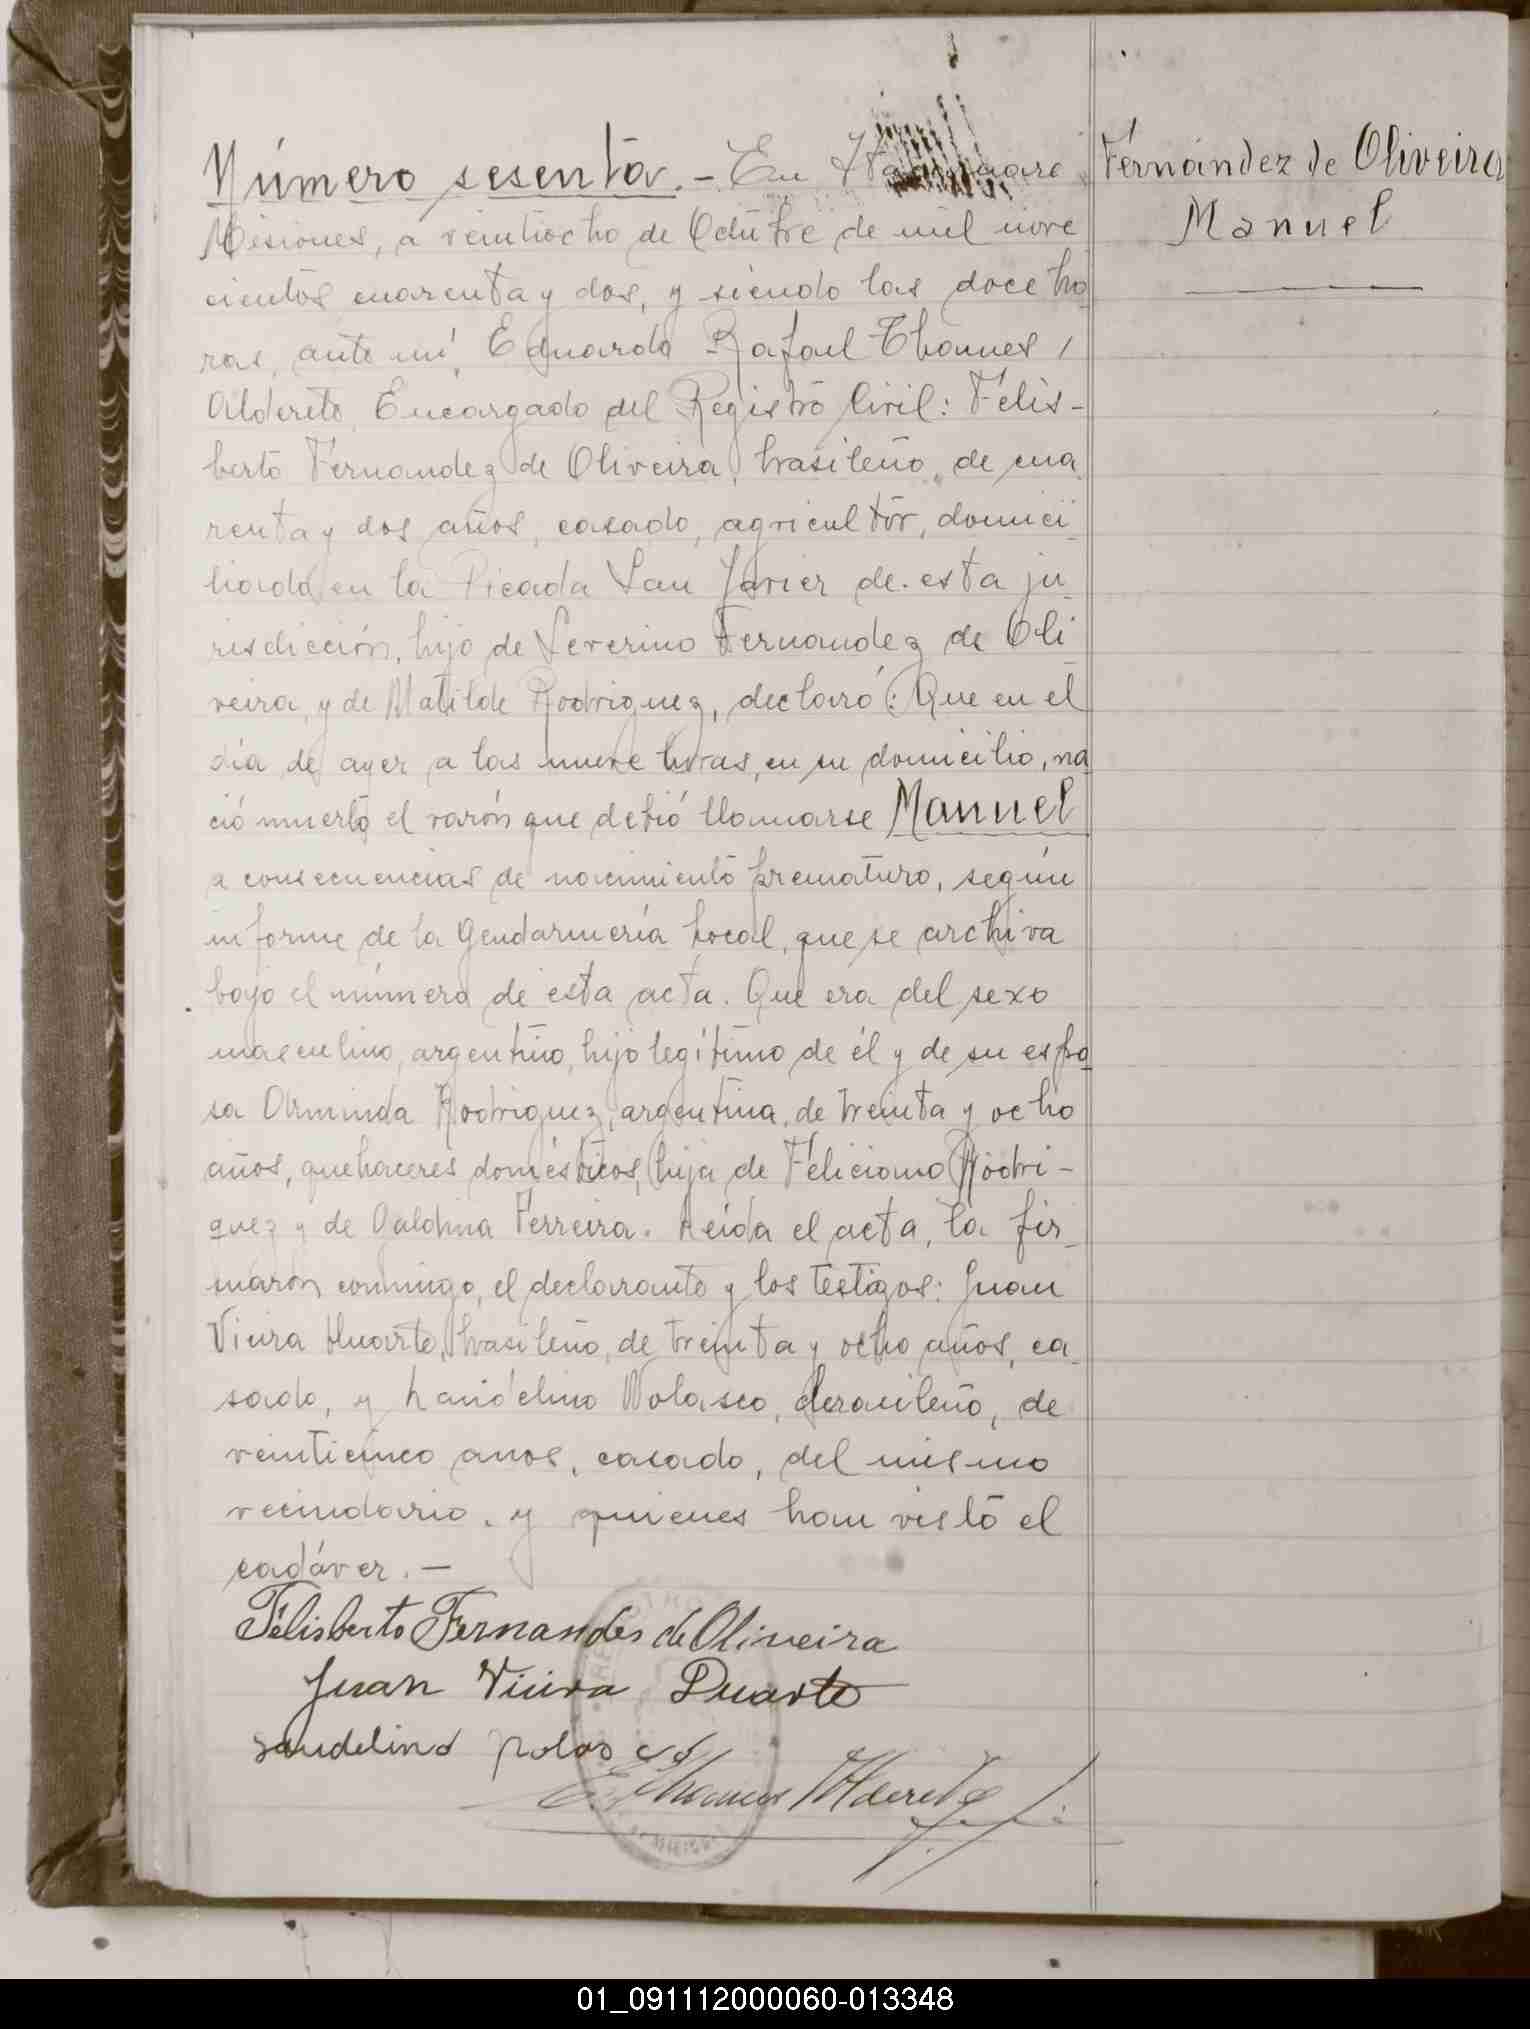 Número sesenta. - En Itacaruaré
Misiones, a veintiocho de Octubre de mil nove
cientos cuarenta y dos, y siendo las doce ho
ras, ante mí, Eduardo Rafael Thames
Alderete Encargado del Registro Civil: Felis-
berto Fernandez de Oliveira, brasileño, de cua
renta y dos años, casado, agricultor, domici
liado en la Picada San Javier de esta ju
risdicción, hijo de Severino Fernandez de Oli
veira, y de Matilde Rodriguez, declaró: Que en el
día de ayer a las nueve horas, en su domicilio, na
ció muerto el varón que debió llamarse Manuel
a consecuencias de nacimiento prematuro, según
informe de la Gendarmería local, que se archiva
bajo el número de esta acta. Que era del sexo
masculino, argentino, hijo legítimo de él y de su espo
sa Orminda Rodriguez, argentina, de treinta y ocho
años, quehaceres domésticos, hija de Feliciano Rodri-
guez y de Galdina Ferreira. Leída el acta, la fir
maron conmigo, el declarante y los testigos: Juan
Vieira Duarte, brasileño, de treinta y ocho años, ca
sado, y Laudelino Nolasco, brasileño, de
veinticinco años, casado, del mismo
vecindario, y quienes han visto el
cadáver. -
Felisberto Fernandes de Oliveira
Juan Vieira Duarte
Laudelino nolasco
E. Thames Alderete
Fernández de Oliveira
Manuel
01_091112000060-013348